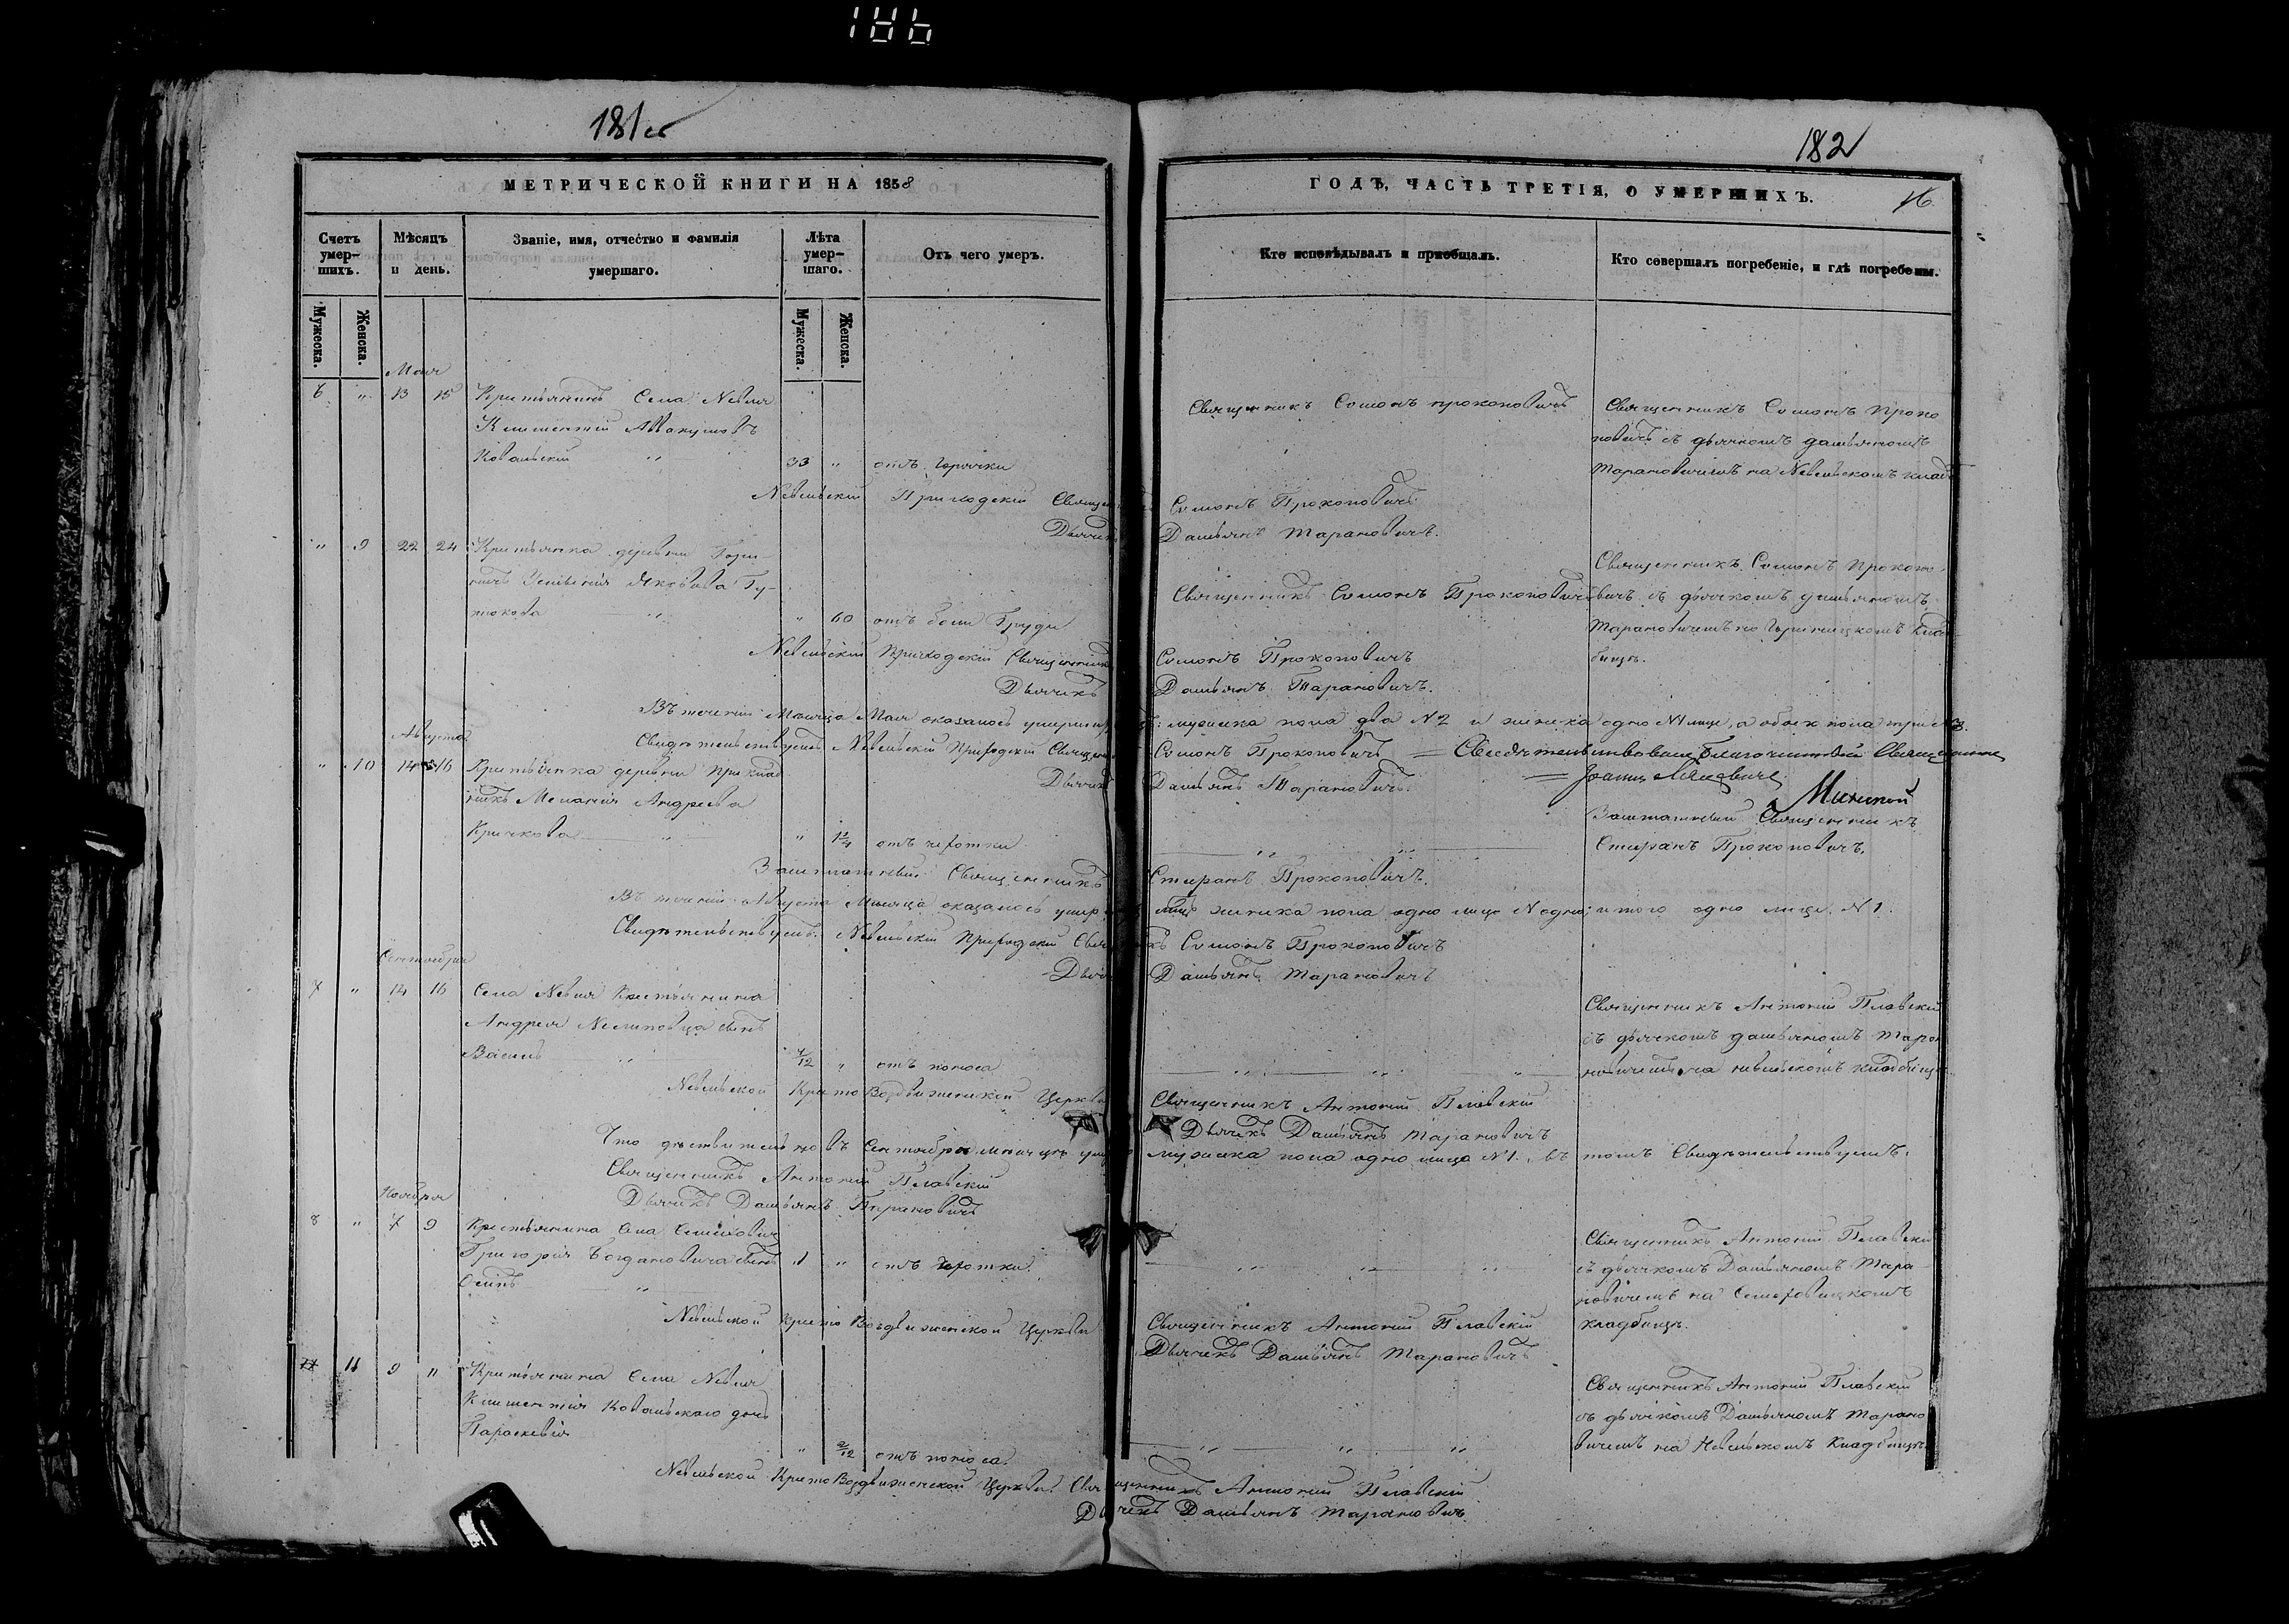 186
181 об
182
МЕТРИЧЕСКОЙ КНИГИ НА 1858
ГОДЪ, ЧАСТЬ ТРЕТІЯ, О УМЕРШИХЪ.
16.
Счетъ умер-шихъ.
Мѣсяцъ и день.
Званіе, имя, отчество и фамилія умершаго.
Лѣта умер-шаго.
Отъ чего умеръ.
Кто исповѣдывалъ и приобщалъ.
Кто совершалъ погребеніе, и гдѣ погребены.
Мужеска.
Женска.
Мужеска.
Женска.
Мая
6 " 13 15 Крестьянинъ Села Невля
Климентій Аввакумовъ
Ковальскій " 33 " отъ горячки
Священникъ Симонъ Прокоповичъ
Священникъ Симонъ Проко
повичъ съ дьячкомъ Дамьяномъ
Тарановичемъ на Невельскомъ клад
Невельскій Приходскій Священ
Симонъ Прокоповичъ
Дьячекъ Дамьянъ Тарановичъ.
" 9 22 24 Крестьянка деревни Гори
Яковова Гу-
" 60 отъ боли Груди
Священникъ Симонъ Прокоповичъ
Священникъ Симонъ Прокопо
вичъ съ дьячкомъ Дамьяномъ
Тарановичемъ на
бищѣ.
Невельскій Приходскій Священникъ Симонъ Прокоповичъ
Дьячекъ Дамьянъ Тарановичъ.
Въ теченіи Месяца Мая оказалось умершихъ: мужеска пола два N 2 и женска одно N 1 лице, а обоех пола три N 3.
Свидѣтельствуемъ Невельскій Приходскій Священ Симонъ Прокоповичъ = Свидѣтельствовалъ Благочинный Священникъ
Дьячекъ Дамьянъ Тарановичъ. = Іоаннъ
Августа
" 10 14 16 Крестьянка деревни Приклад
никъ Меланія Андреева
Кричкова " " отъ чехотки
Заштатный Священникъ
Стефанъ Прокоповичъ.
Заштатный Священникъ Стефанъ Прокоповичъ.
Въ теченіи Августа Месяца оказалось умер женска пола одно лице N одно; итого одно лице. N 1.
Свидѣтельствуемъ. Невельскій Приходскій Свя Симонъ Прокоповичъ
Дья Дамьянъ Тарановичъ
Сентября
7 " 14 16 Села Невля Крестьянина
Андрея сынъ
Василь " 7/12 " отъ поноса
Священникъ Антоній Плавскій
съ дьячкомъ Дамьяномъ Таро
новичемъ на невельскомъ кладбищѣ
Невельской Кресто Воздвиженской Церкви Священникъ Антоній Плавскій
Дьячекъ Дамьянъ Тарановичъ
Что дѣствительно въ Сентябрѣ месяцѣ уме мужеска пола одно лице N 1., въ томъ Свидѣтельствуемъ.
Священникъ Антоній Плавскій
Дьячекъ Дамьянъ Тарановичъ
Ноября
8 " 7 9 Крестьянина Села
Григорія Богдановича сынъ 1 " отъ чехотки
Осипъ "
Священникъ Антоній Плавскі
съ дьячкомъ Дамьяномъ Тара
новичемъ на
кладбищѣ.
Невельской Кресто Воздвиженской Церкви Священникъ Антоній Плавскій
Дьячекъ Дамьянъ Тарановичъ
11 9 11 Крестьянина Села Невля
Климентія Ковальскаго дочь
Параскевія " 2/12 отъ поноса.
Священникъ Антоній Плавскій
съ дьячкомъ Дамьяномъ Тарано
вичемъ на Невельскомъ Кладбищѣ
Невельской Кресто Воздвиженской Церкви Священникъ Антоній Плавскій
Дьячекъ Дамьянъ Тарановичъ